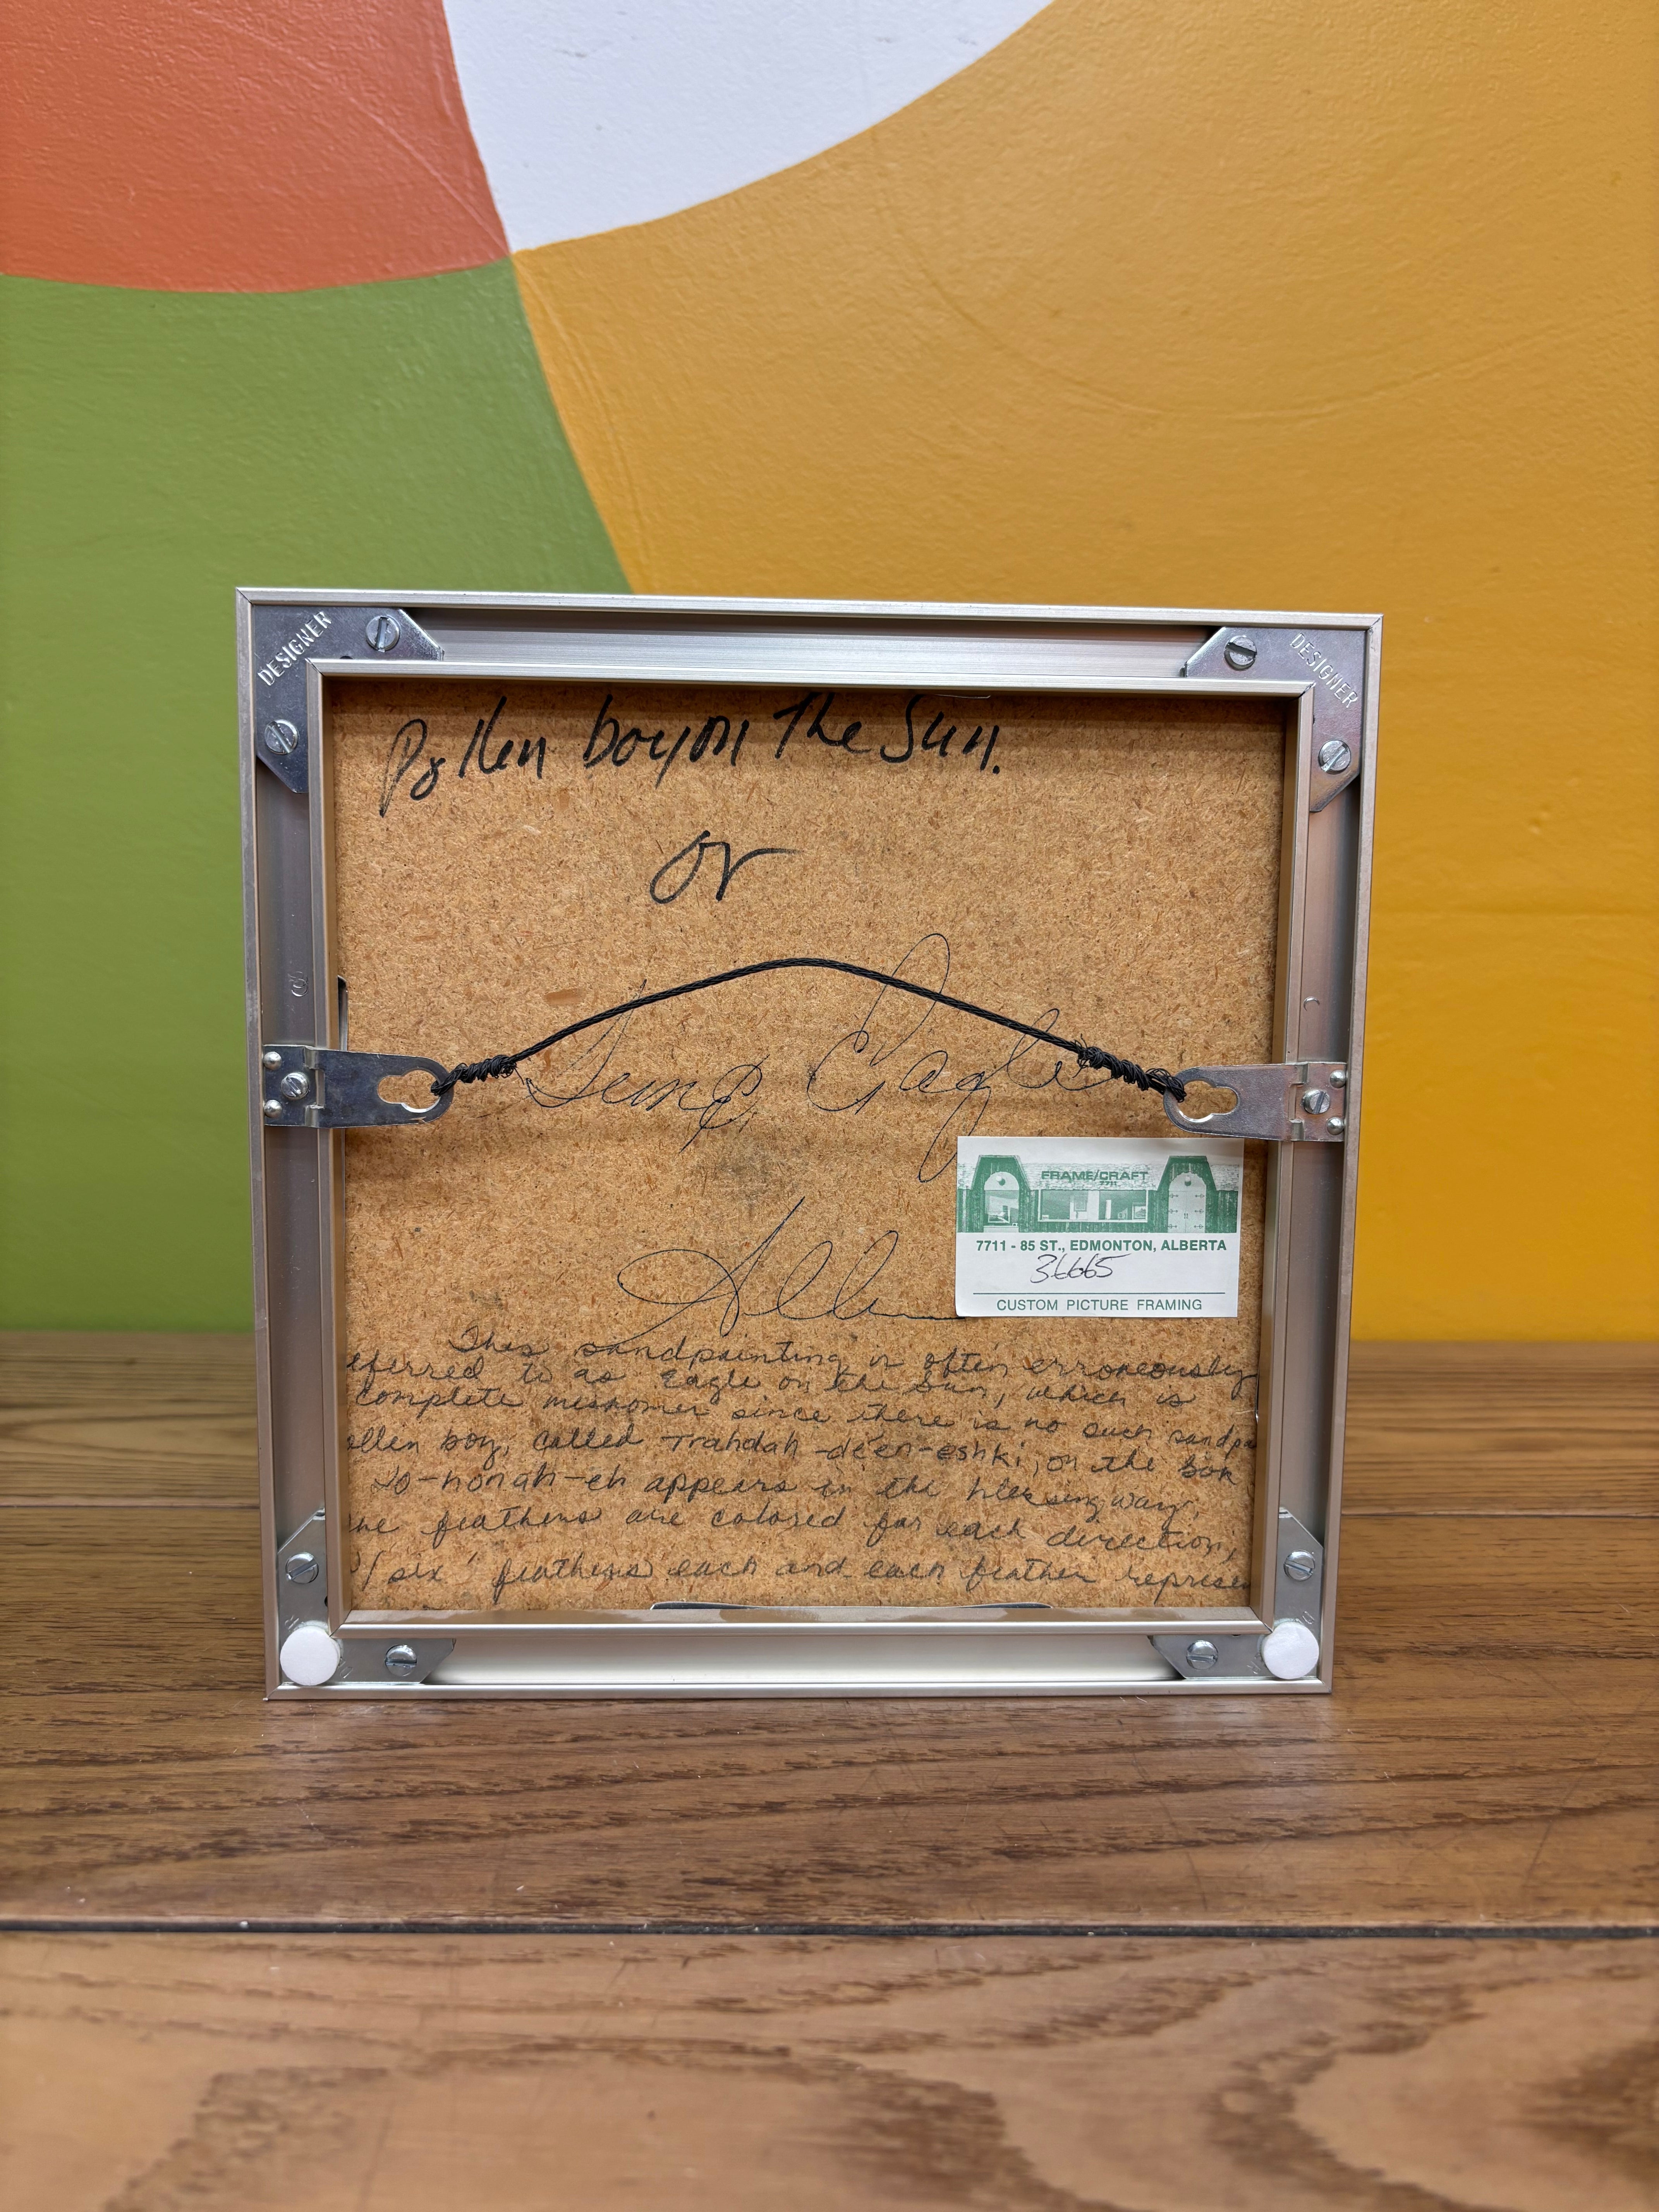 DESIGNER
DESIGNER
Pollen boy on The Sun.
or
Eagle
FRAME/CRAFT
7711
7711 - 85 ST., EDMONTON, ALBERTA
36665
CUSTOM PICTURE FRAMING
This sandpainting is often erroneously
eferred to as Eagle on the Sun, which is
complete misnomer since there is no such sandpa
ollen boy, called Trahdah-de'en-eshki, on the Sun
Jo-honah-eh appears in the blessing way,
he feathers are colored for each direction,
six feathers each and each feather represen